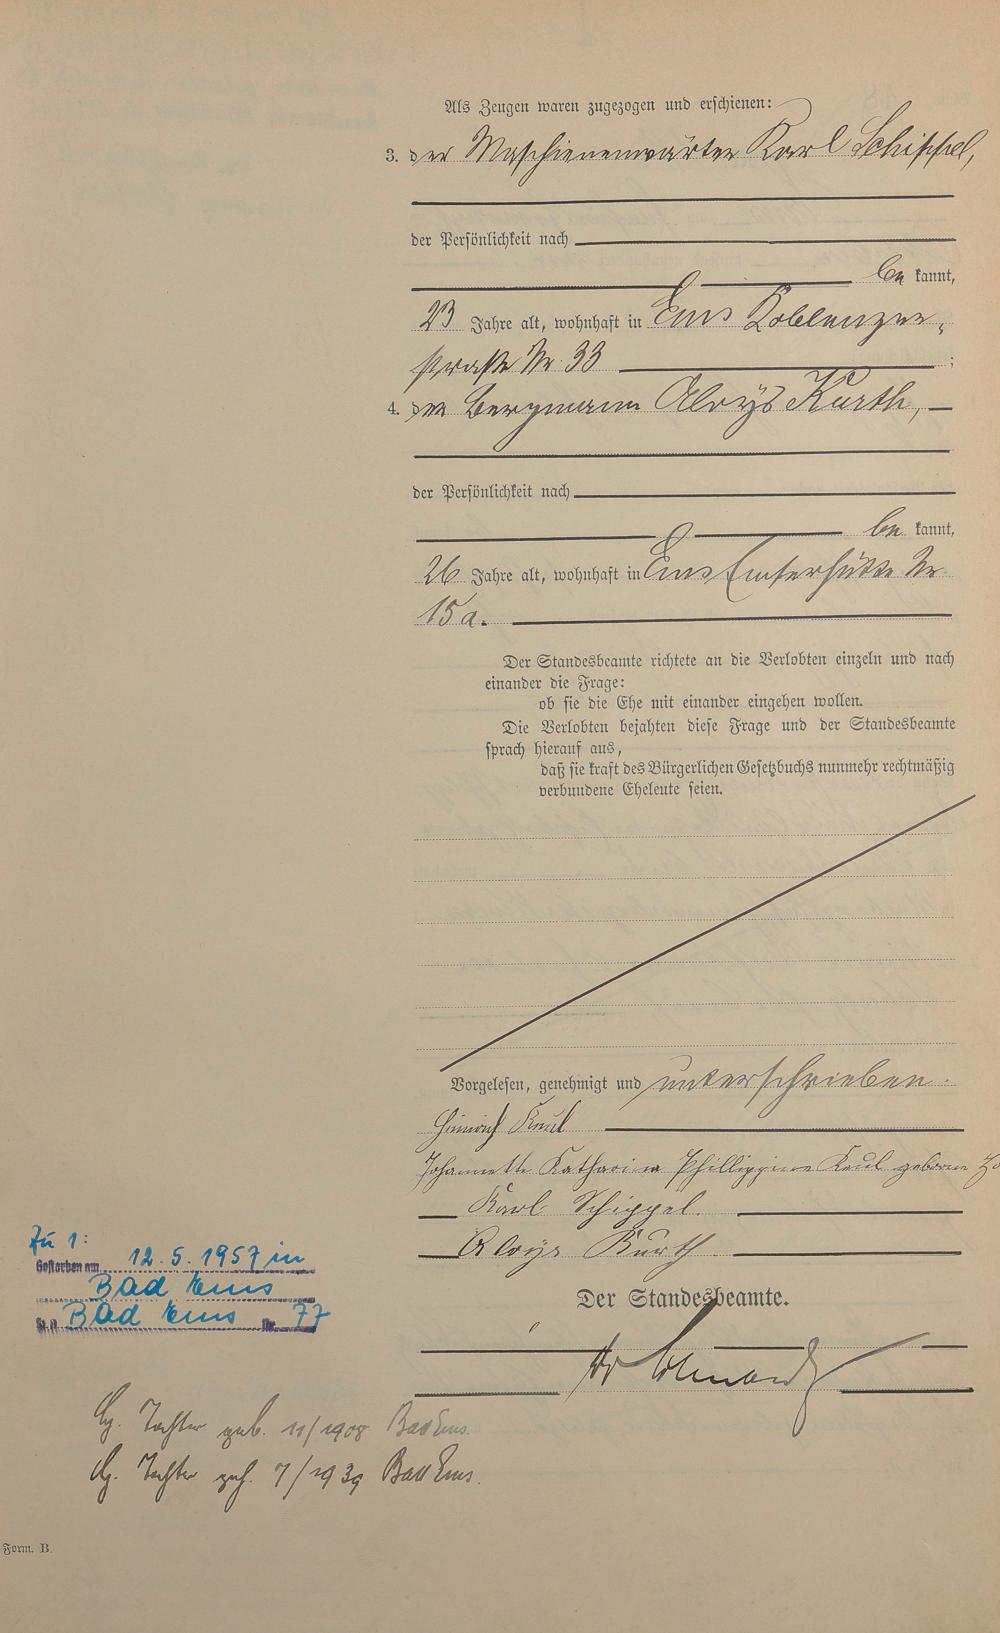 Als Zeugen waren zugezogen und erschienen:
3. der Maschienenwärter Karl Schippel,
der Persönlichkeit nach
be kannt,
23 Jahre alt, wohnhaft in Ems Koblenzer
straße Nr. 33 ;
4. der Bergmann Aloys Kurth,
der Persönlichkeit nach
be kannt,
26 Jahre alt, wohnhaft in Ems Emserhütte Nr
15a.
Der Standesbeamte richtete an die Verlobten einzeln und nach
einander die Frage:
ob sie die Ehe mit einander eingehen wollen.
Die Verlobten bejahten diese Frage und der Standesbeamte
sprach hierauf aus,
daß sie kraft des Bürgerlichen Gesetzbuchs nunmehr rechtmäßig
verbundene Eheleute seien.
Vorgelesen, genehmigt und unterschrieben.
Heinrich Keul
Johannette Katharina Phillippine Keul geborene
Karl Schippel.
Aloys Kurth.
Zu 1:
Gestorben am 12.5.1957 in
Bad Ems
St.A. Bad Ems Nr. 77
Der Standesbeamte.
Tochter geb. 11/1908 Bad Ems.
Tochter geh. 7/1939 Bad Ems.
Form. B.